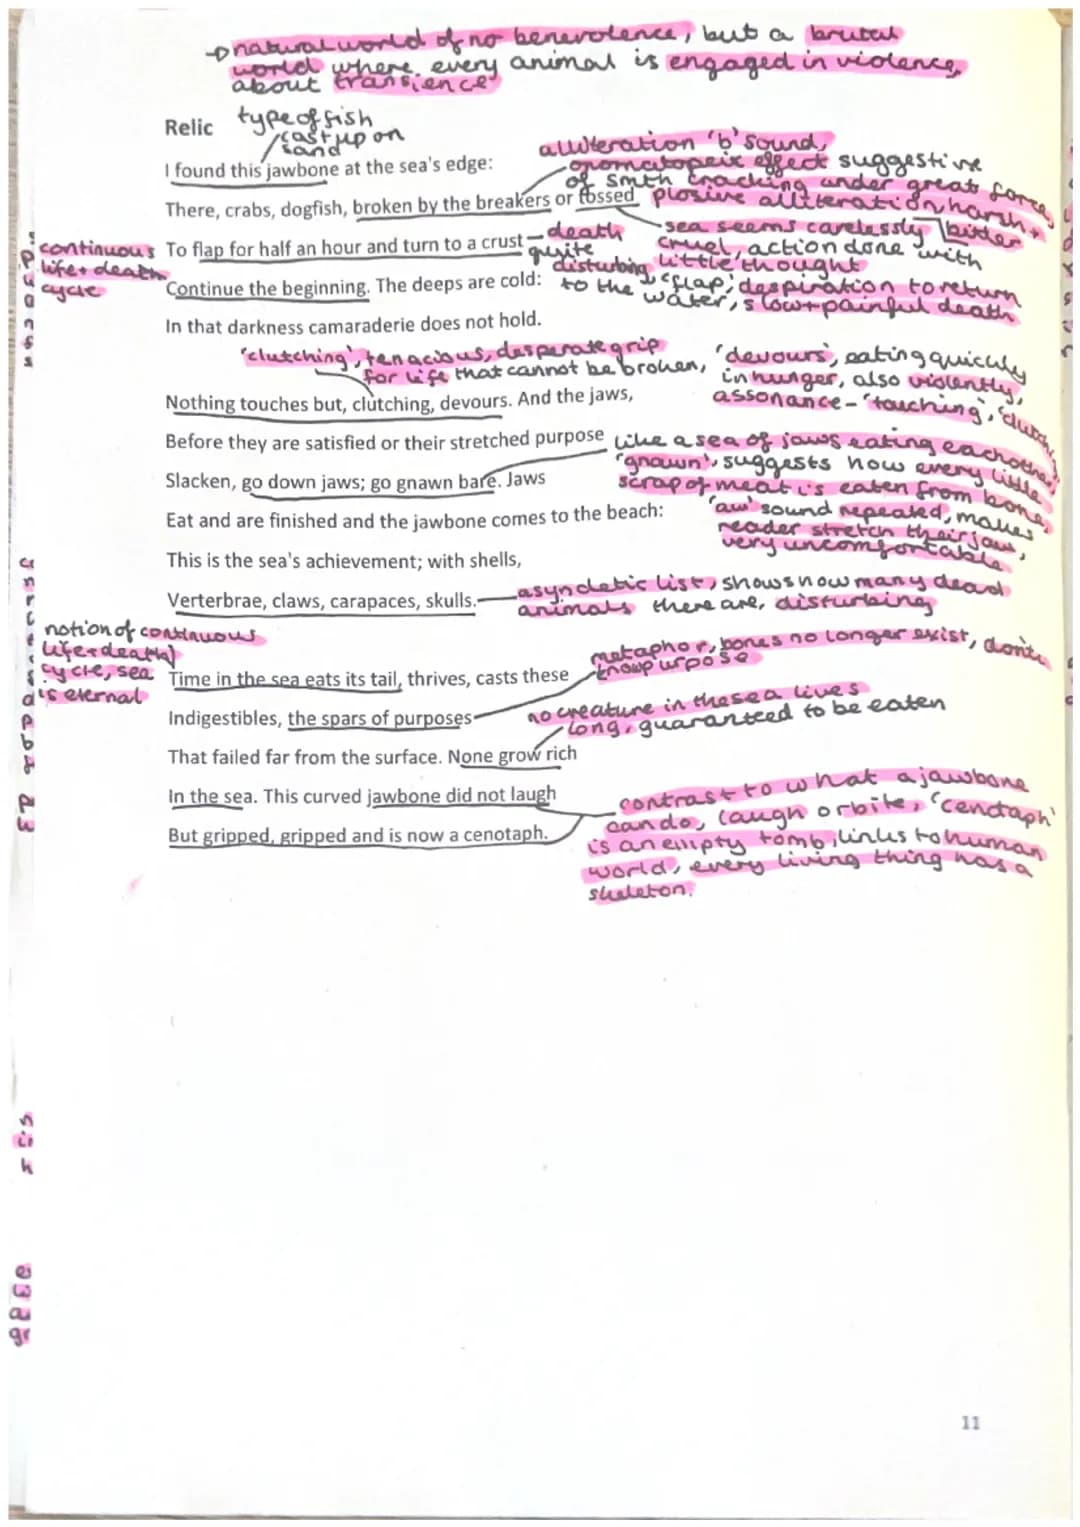 →natural world of no benevolence, but a brutal
world where every animal is engaged in violence,
about transience
Relic
type of fish
cast up on
sand
alliteration 'b' sound,
onomatopeic effect suggestive
of smth cracking under great force,
plosive alliteration, harsh +
bitter
I found this jawbone at the sea's edge:
There, crabs, dogfish, broken by the breakers or tossed
sea seems carelessly
cruel, action done with
little thought
continuous
life + death
cycle
To flap for half an hour and turn to a crust
death
quite
disturbing
Continue the beginning. The deeps are cold:
'flap', despiration to return
to the water, slow + painful death
In that darkness camaraderie does not hold.
'clutching', tenacious, desperate grip
for life that cannot be broken,
'devours', eating quickly
in hunger, also violently,
assonance - 'touching', 'clutching'
Nothing touches but, clutching, devours. And the jaws,
Before they are satisfied or their stretched purpose
like a sea of jaws eating eachother
'gnawn', suggests how every little
scrap of meat is eaten from bone,
Slacken, go down jaws; go gnawn bare. Jaws
'aw' sound repeated, makes
reader stretch their jaw,
very uncomfortable
Eat and are finished and the jawbone comes to the beach:
This is the sea's achievement; with shells,
Verterbrae, claws, carapaces, skulls.
asyndetic list, shows how many dead
animals there are, disturbing
notion of continuous
life + death
cycle, sea
is eternal
metaphor, bones no longer exist, don't
know purpose
Time in the sea eats its tail, thrives, casts these
Indigestibles, the spars of purposes
no creature in the sea lives
long, guaranteed to be eaten
That failed far from the surface. None grow rich
In the sea. This curved jawbone did not laugh
But gripped, gripped and is now a cenotaph.
contrast to what a jawbone
can do, laugh or bite, 'cenotaph'
is an empty tomb, links to human
world, every living thing has a
skeleton.
11